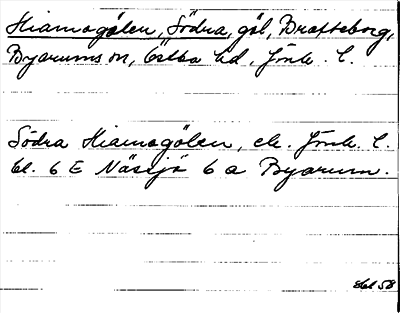 Hiamogölen, Södra, göl, Bratteborg,
Byarums sn, Östbo hd, Jönk. l.
Södra Hiamogölen, ek. Jönk. l.
bl. 6 E Nässjö 6 a Byarum.
58